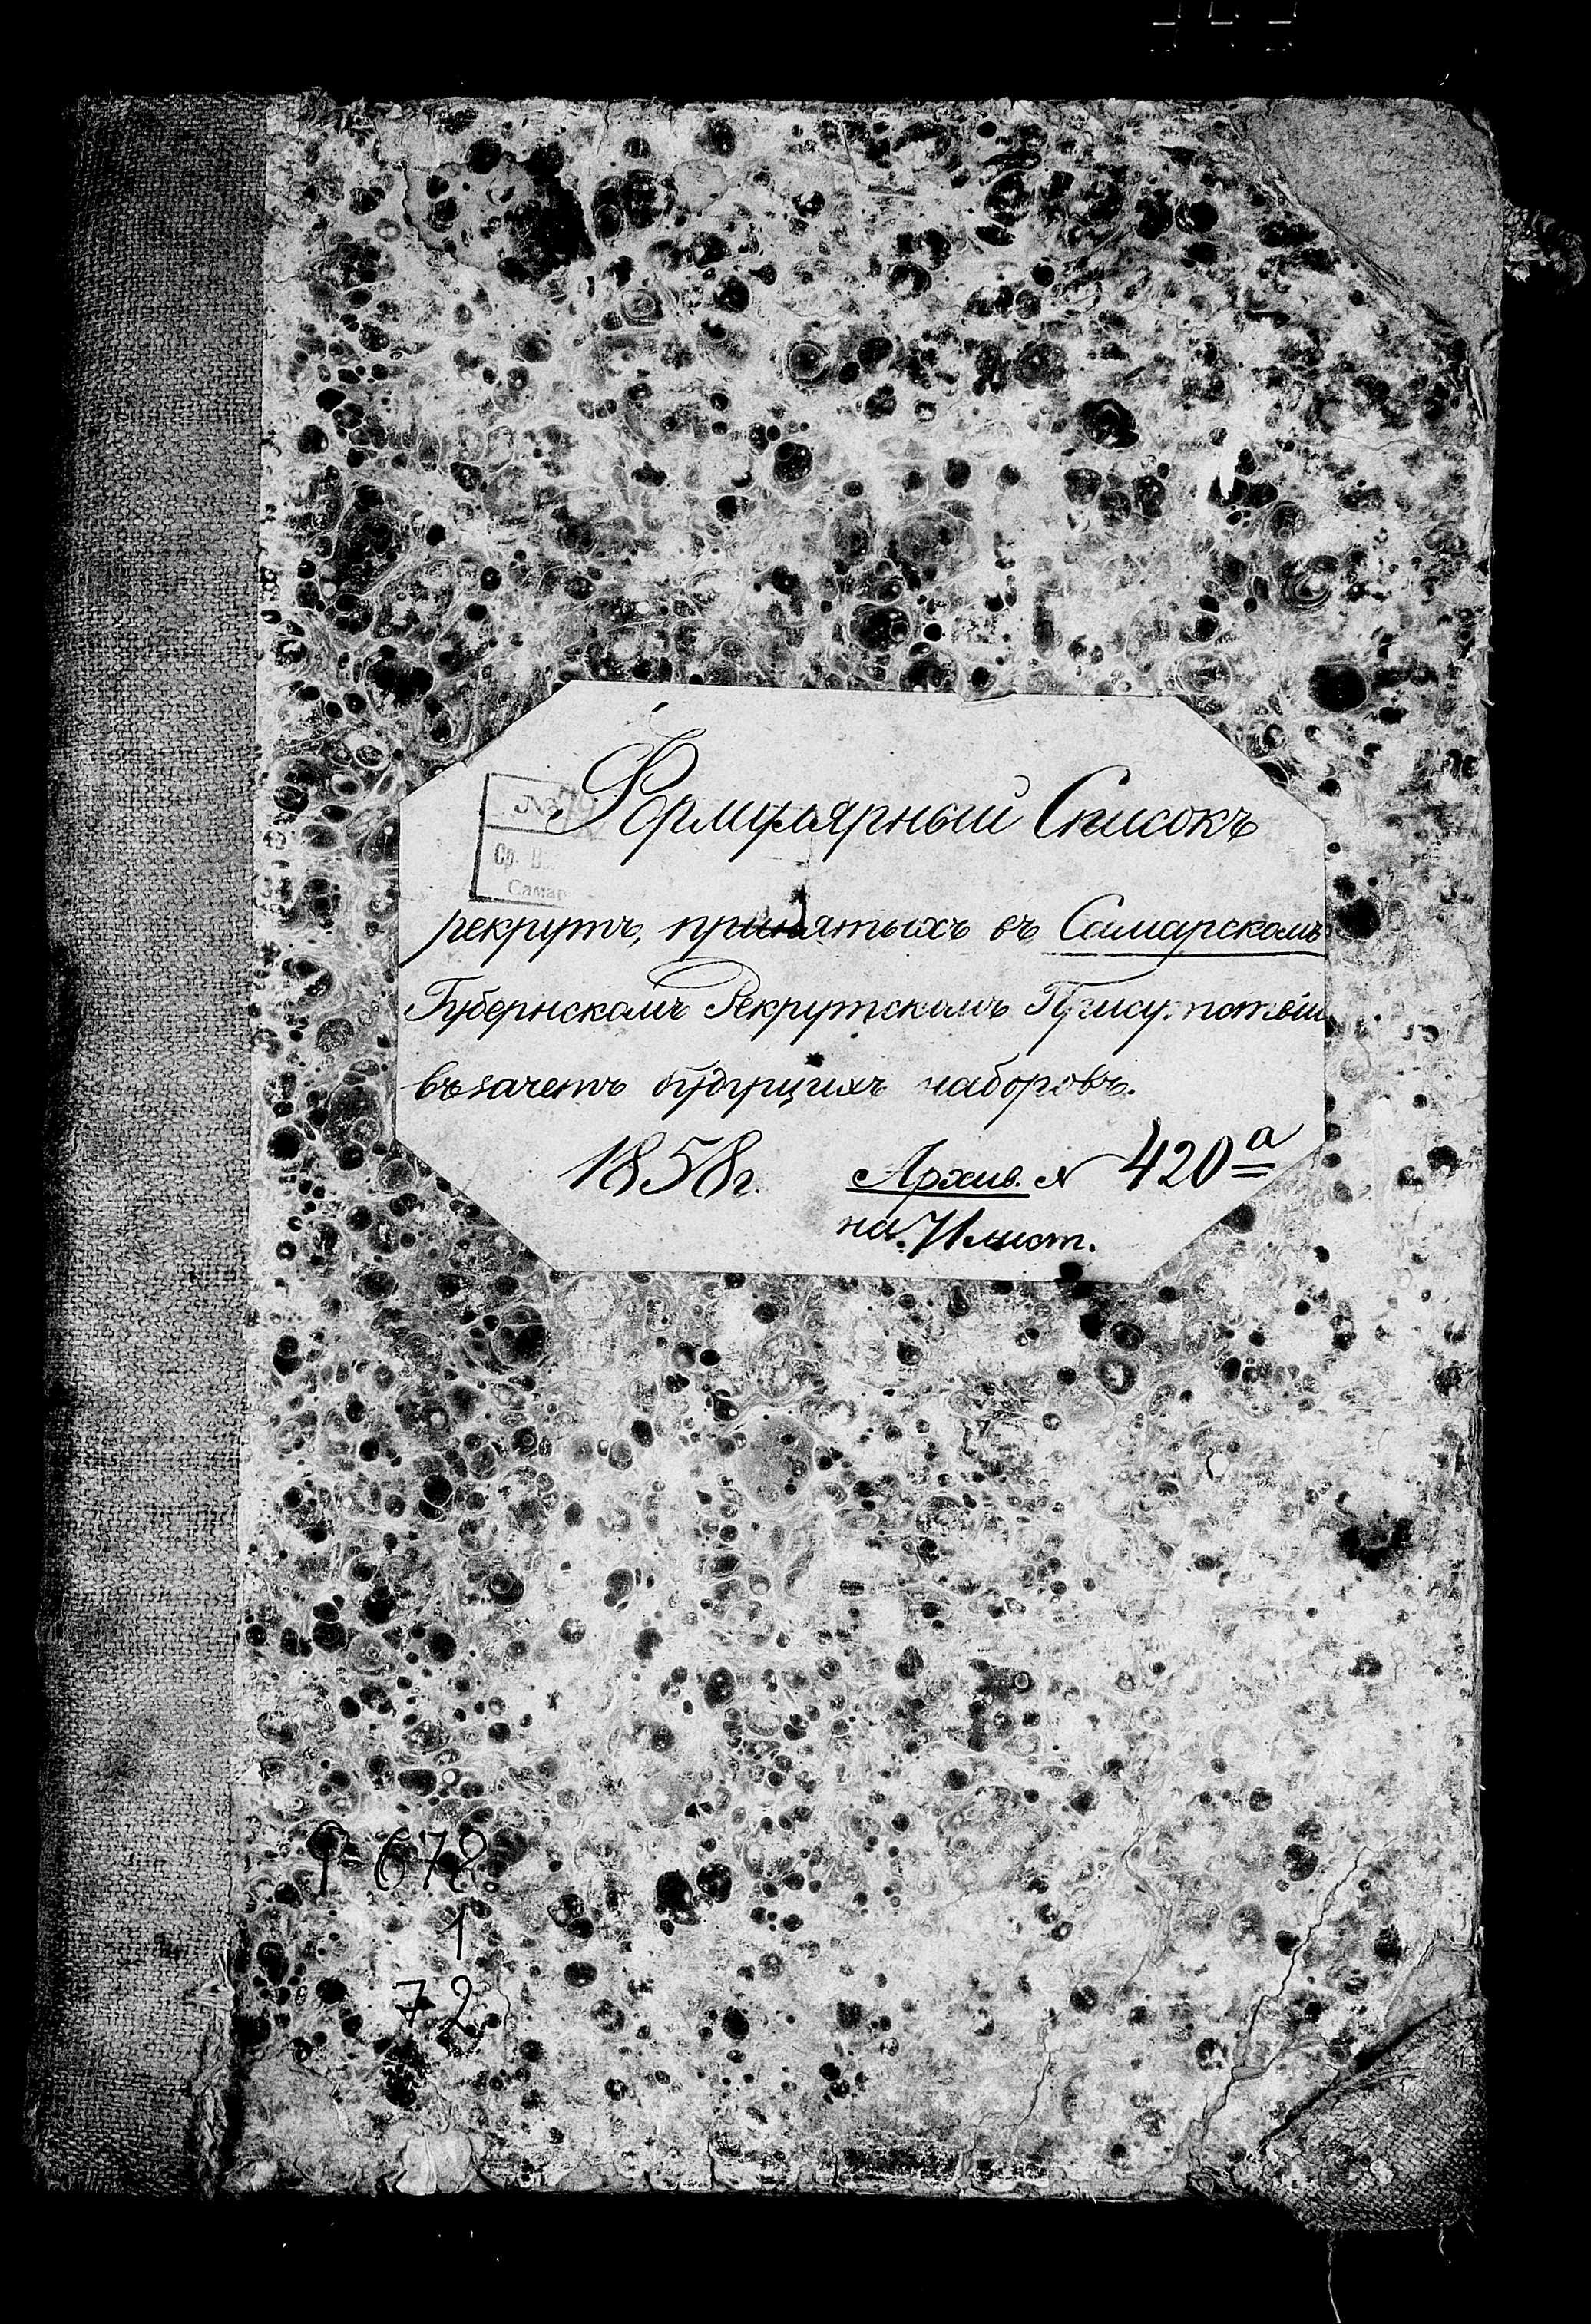 Формулярный Списокъ
рекрутъ, принятыхъ въ Самарскомъ
Губернскомъ Рекрутскомъ
въ зачетъ будущихъ наборовъ.
1858 г. Архив. № 420 а
на 71 лист.
№
Ср.
Самар
678
1
72